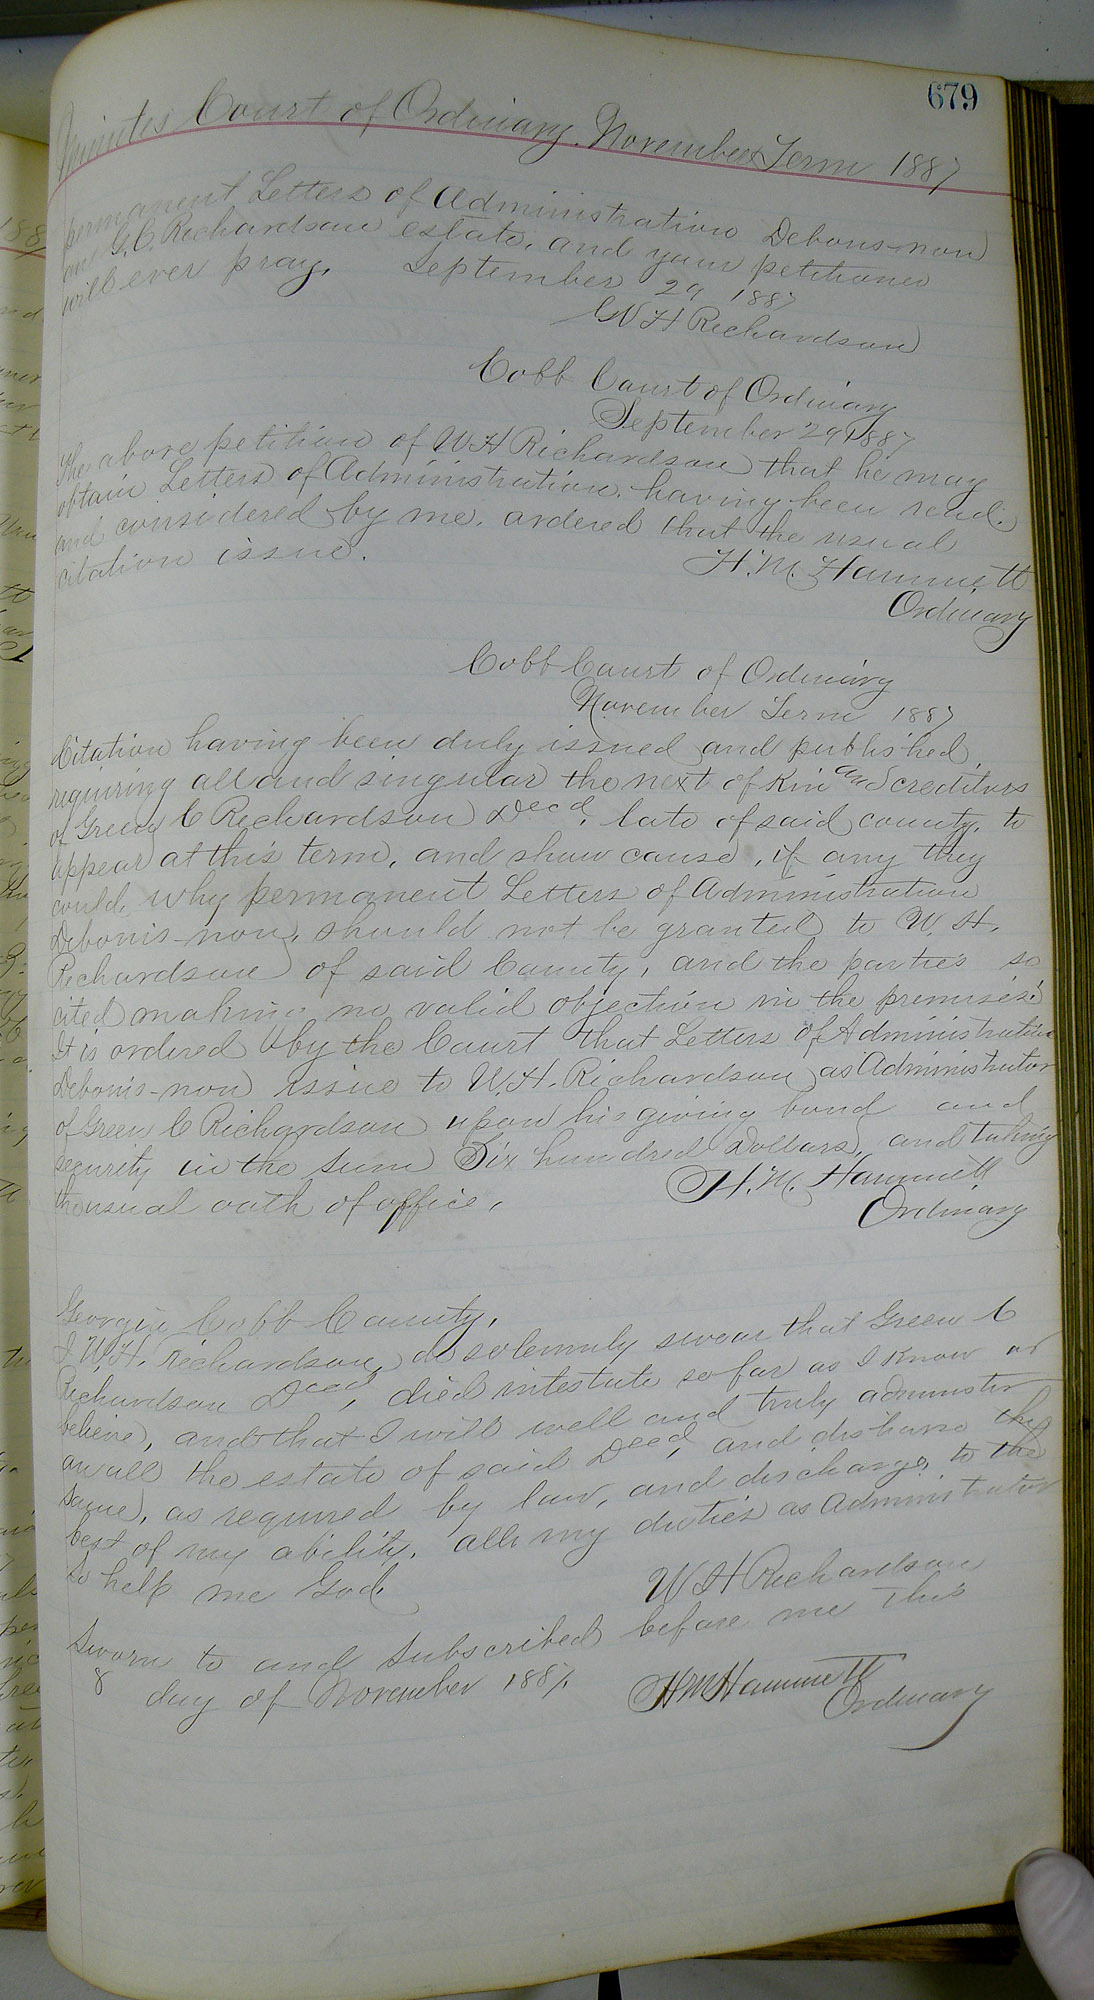 679
Minutes Court of Ordinary November Term 1887
permanent Letters of Administration Debonis-non
on G. C. Richardson estate, and your petitioner
will ever pray, September 29 1887
W H Richardson
Cobb Court of Ordinary
September 29 1887
The above petition of W H Richardson that he may
obtain Letters of Administration, having been read
and considered by me, ordered that the usual
citation issue.
H. M. Hammett
Ordinary
Cobb Court of Ordinary
November Term 1887
Citation having been duly issued and published,
requiring all and singular the next of Kin and creditors
of Green C Richardson Decd, late of said county, to
appear at this term, and show cause, if any they
could, why permanent Letters of Administration
Debonis-non, should not be granted to W. H.
Richardson of said County, and the parties so
cited making no valid objection in the premises:
It is ordered by the Court that Letters of Administration
Debonis-non issue to W. H. Richardson as Administrator
of Green C Richardson upon his giving bond and
security in the sum Six hundred Dollars, and taking
the usual oath of office,
H. M. Hammett
Ordinary
Georgia Cobb County,
I W. H. Richardson, do solemnly swear that Green C
Richardson Decd, died intestate so far as I Know or
believe, and that I will well and truly administer
on all the estate of said Decd, and disburse the
same, as required by law, and discharge, to the
best of my ability, all my duties as Administrator
So help me God.
W H Richardson
Sworn to and Subscribed before me This
8 day of November 1887.
H M Hammett
Ordinary